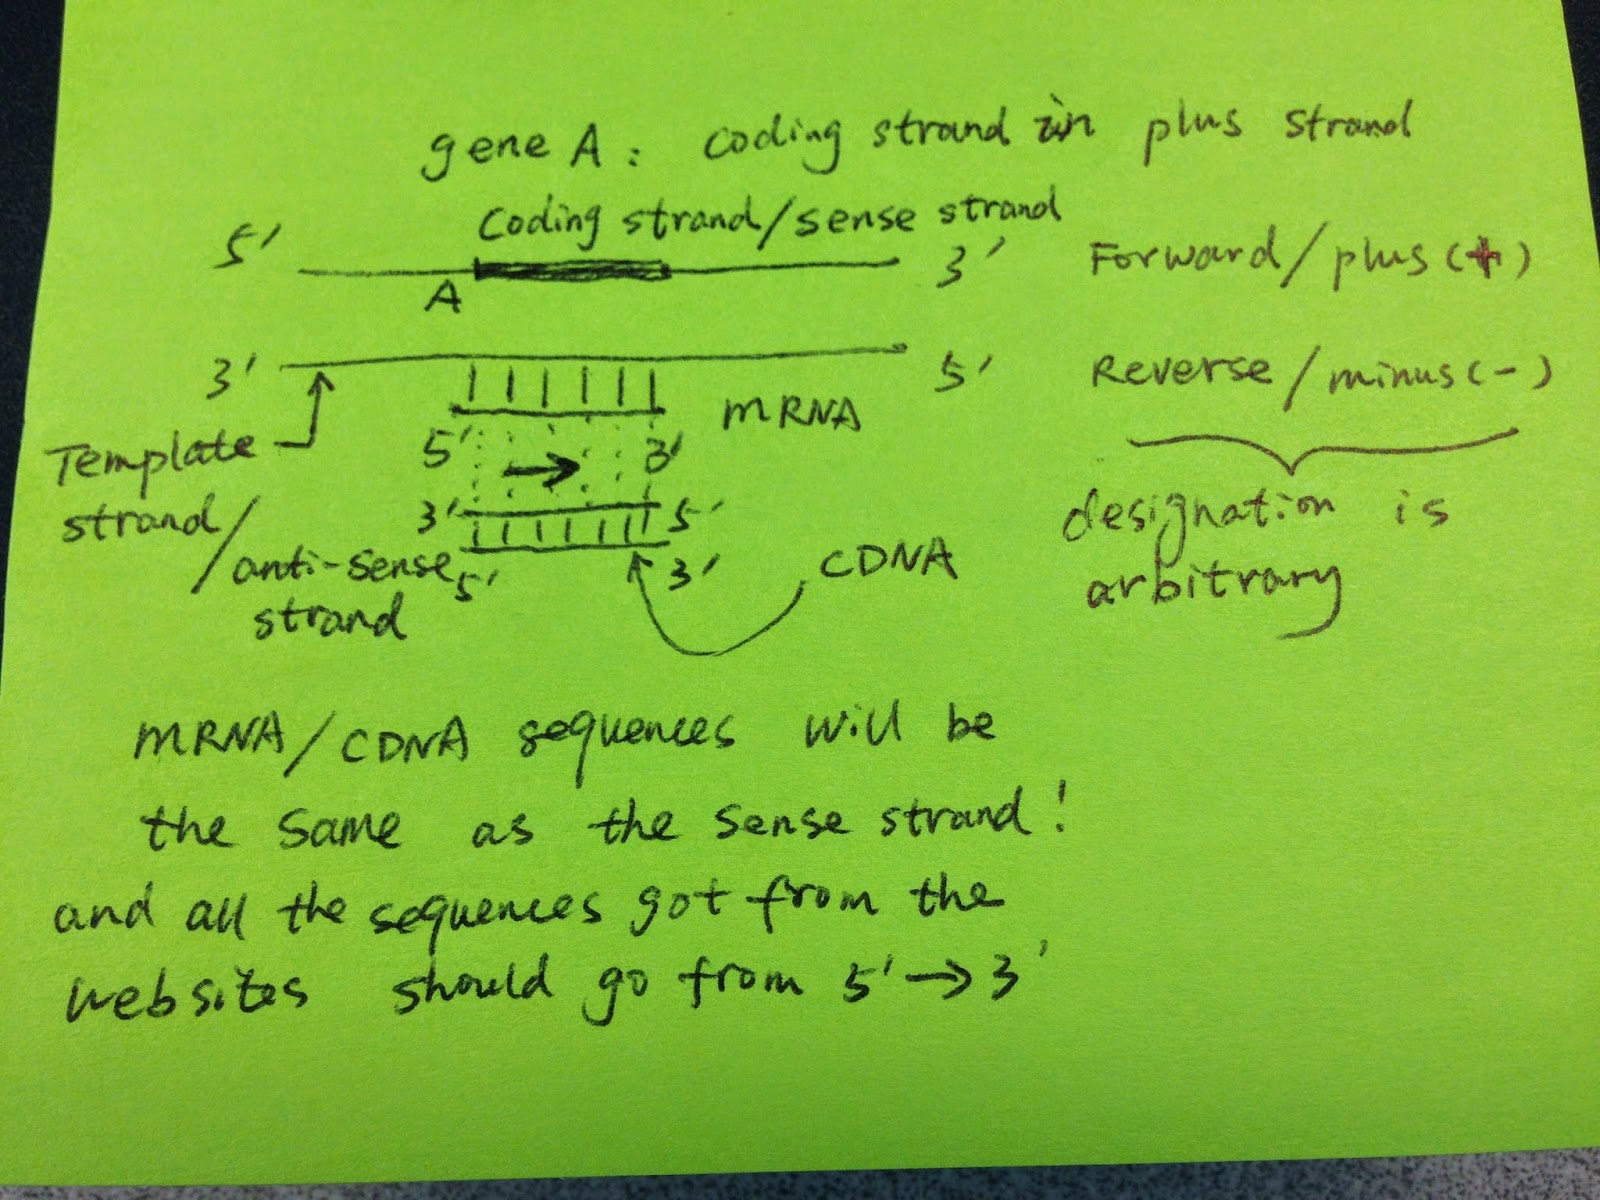 gene A: coding strand in plus strand
Coding strand/sense strand
5' 3' Forward/plus(+)
A
3' 5' Reverse/minus(-)
mRNA
5' 3'
Template
strand/
anti-sense
strand
3' 5'
5' 3'
CDNA
designation is
arbitrary
mRNA/CDNA sequences will be
the same as the sense strand!
and all the sequences got from the
websites should go from 5'→3'